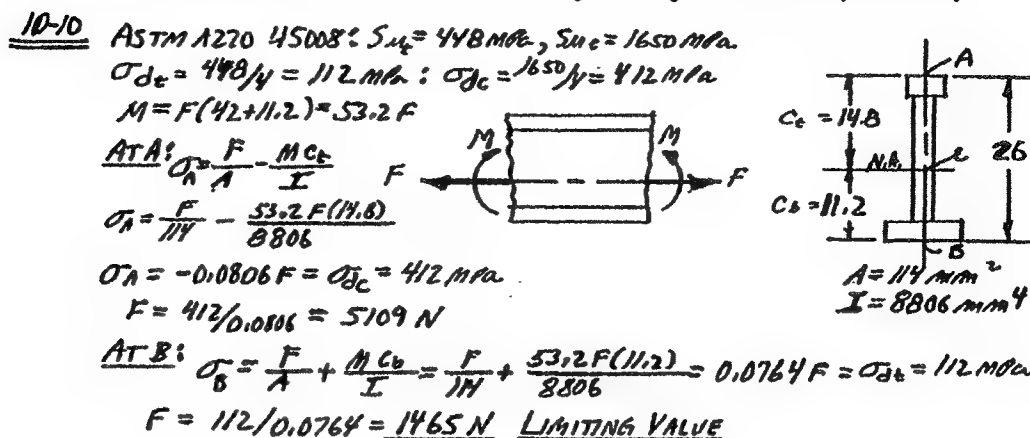 10-10 ASTM A220 45008: Sut = 448 MPa, Suc = 1650 MPa
σdt = 448/4 = 112 MPa : σdc = 1650/4 = 412 MPa
M = F(42+11.2) = 53.2 F
AT A: σA = F/A - M Ct/I
σA = F/114 - 53.2 F(14.8)/8806
σA = -0.0806 F = σdc = 412 MPa
F = 412/0.0806 = 5109 N
AT B: σB = F/A + M Cb/I = F/114 + 53.2 F(11.2)/8806 = 0.0764 F = σdt = 112 MPa
F = 112/0.0764 = 1465 N LIMITING VALUE
F M M F
A
Ct = 14.8
N.A.
26
Cb = 11.2
B
A = 114 mm²
I = 8806 mm⁴